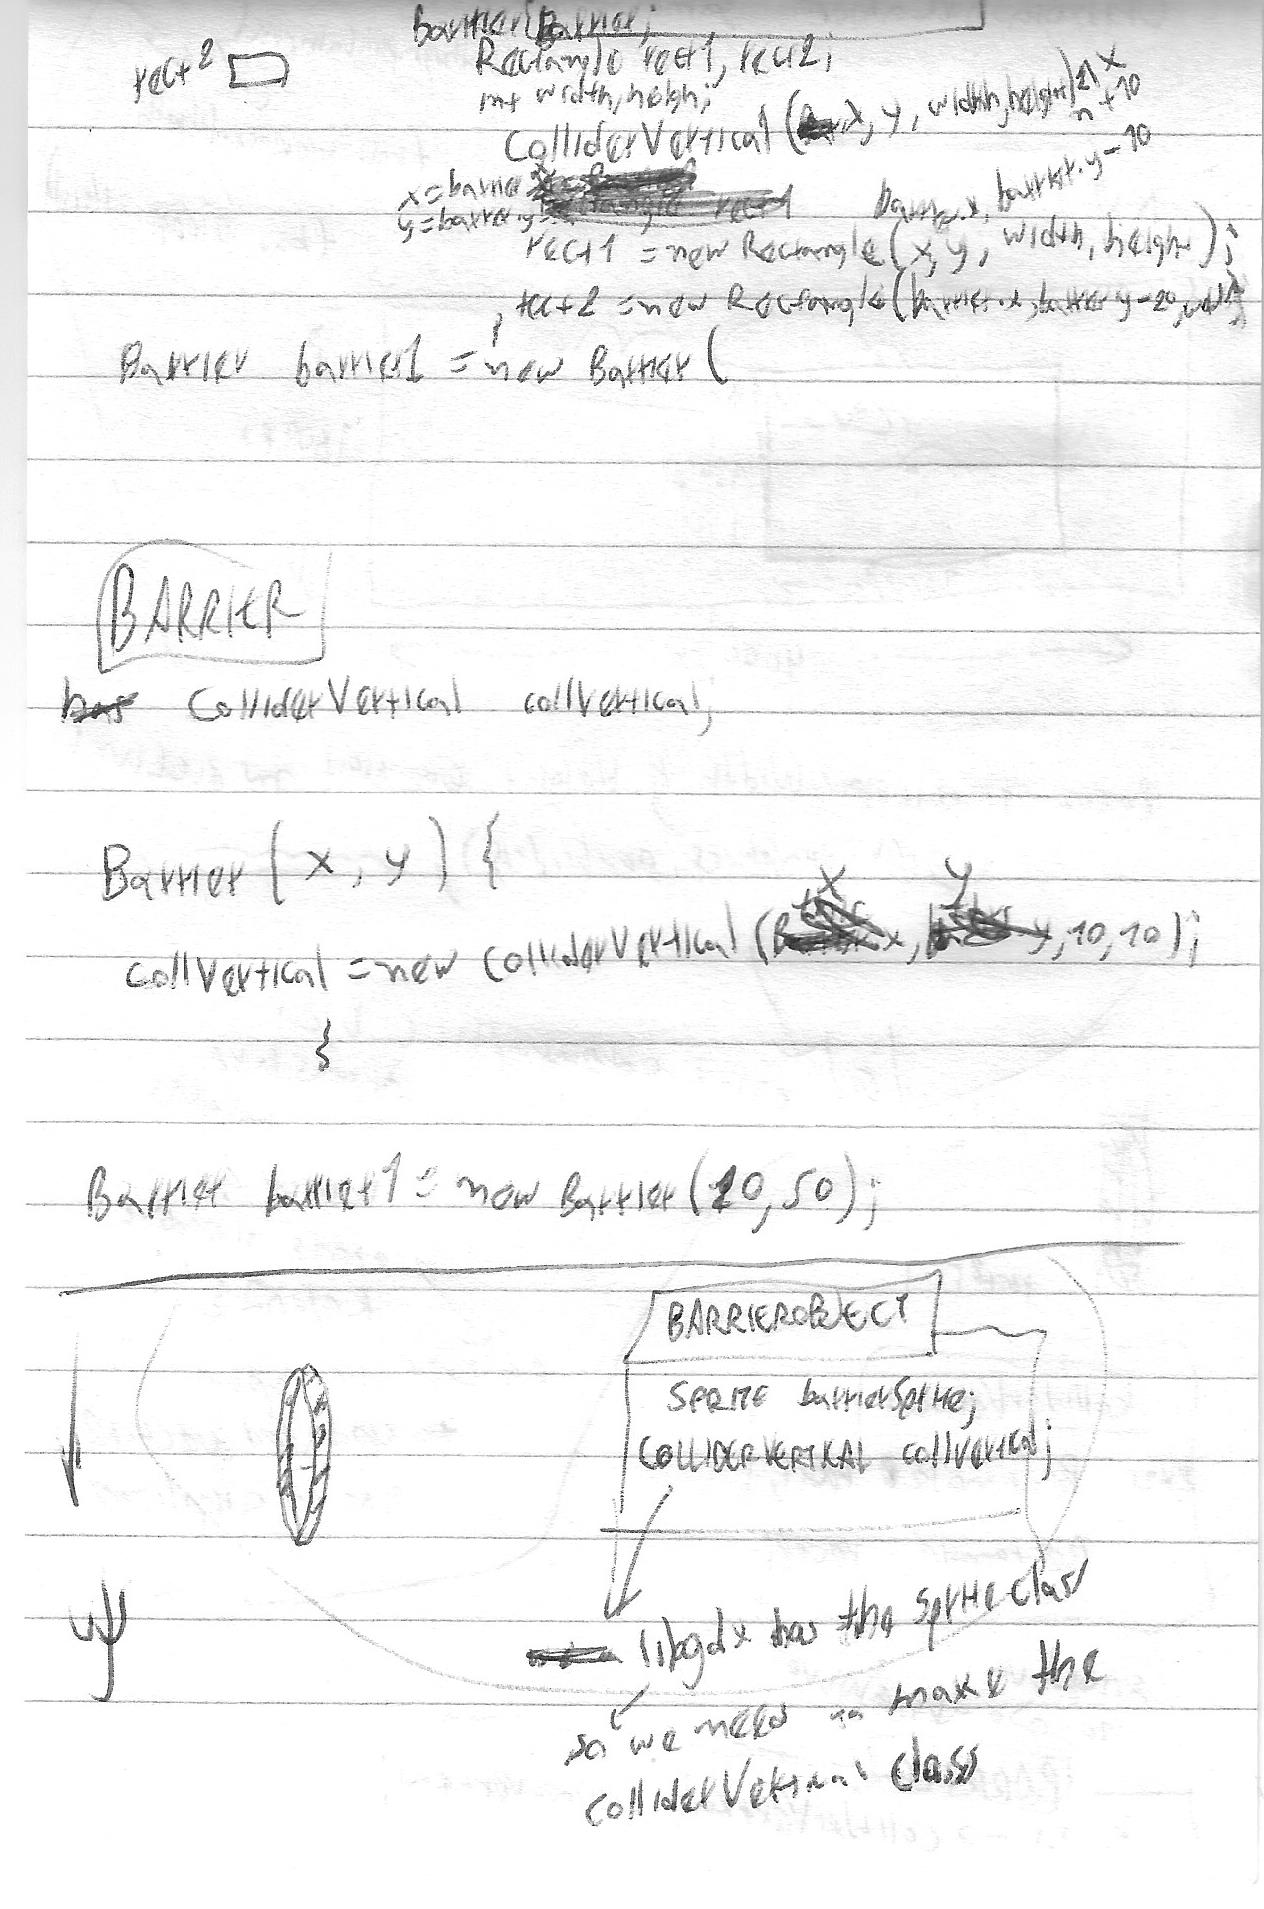 rect2
Rectangle rect1, rect2;
int width, heigh;
ColliderVertical (x, y, width, height)
x
n+10
x=barrier
y=barrier.y
rect1
barrier.x, barrier.y-10
rect1 = new Rectangle(x, y, width, heigh);
rect2 = new Rectangle(barrier.x, barrier y-20,
Barrier barrier1 = new Barrier (
BARRIER
ColliderVertical collVertical;
Barrier (x, y) {
x y
collVertical = new ColliderVertical (x, y, 10, 10);
}
Barrier barrier1 = new Barrier (20, 50);
BARRIEROBJECT
SPRITE barrierSprite;
COLLIDERVERTICAL collVertical;
libgdx has the sprite class
so we need to make the
colliderVertical class